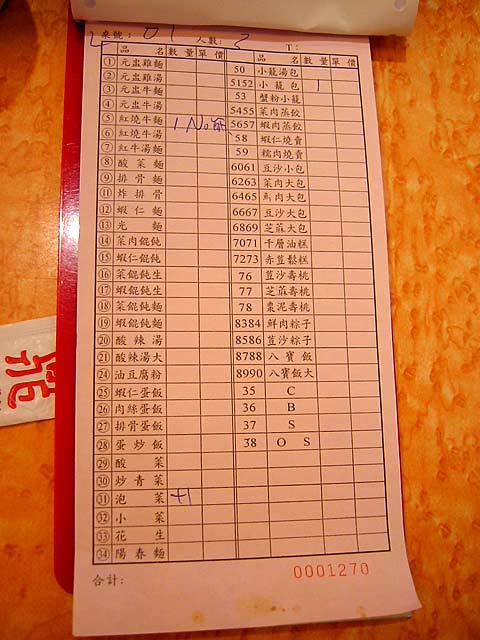 桌號: 01 人數: 2 T:
品名 數量 單價 品名 數量 單價
① 元盅雞麵
② 元盅雞湯
③ 元盅牛麵
④ 元盅牛湯
⑤ 紅燒牛麵 1 No
⑥ 紅燒牛湯
⑦ 紅牛湯麵
⑧ 酸菜麵
⑨ 排骨麵
⑪ 炸排骨
⑫ 蝦仁麵
⑬ 光麵
⑭ 菜肉餛飩
⑮ 蝦仁餛飩
⑯ 菜餛飩生
⑰ 蝦餛飩生
⑱ 菜餛飩麵
⑲ 蝦餛飩麵
⑳ 酸辣湯
㉑ 酸辣湯大
㉔ 油豆腐粉
㉕ 蝦仁蛋飯
㉖ 肉絲蛋飯
㉗ 排骨蛋飯
㉘ 蛋炒飯
㉙ 酸菜
㉚ 炒青菜
㉛ 泡菜 +1
㉜ 小菜
㉝ 花生
㉞ 陽春麵
50 小籠湯包
5152 小籠包 1
53 蟹粉小籠
5455 菜肉蒸餃
5657 蝦肉蒸餃
58 蝦仁燒賣
59 糯肉燒賣
6061 豆沙小包
6263 菜肉大包
6465 鮮肉大包
6667 豆沙大包
6869 芝蔴大包
7071 千層油糕
7273 赤荳鬆糕
76 荳沙壽桃
77 芝蔴壽桃
78 棗泥壽桃
8384 鮮肉粽子
8586 荳沙粽子
8788 八寶飯
8990 八寶飯大
35 C
36 B
37 S
38 O S
合計:
0001270